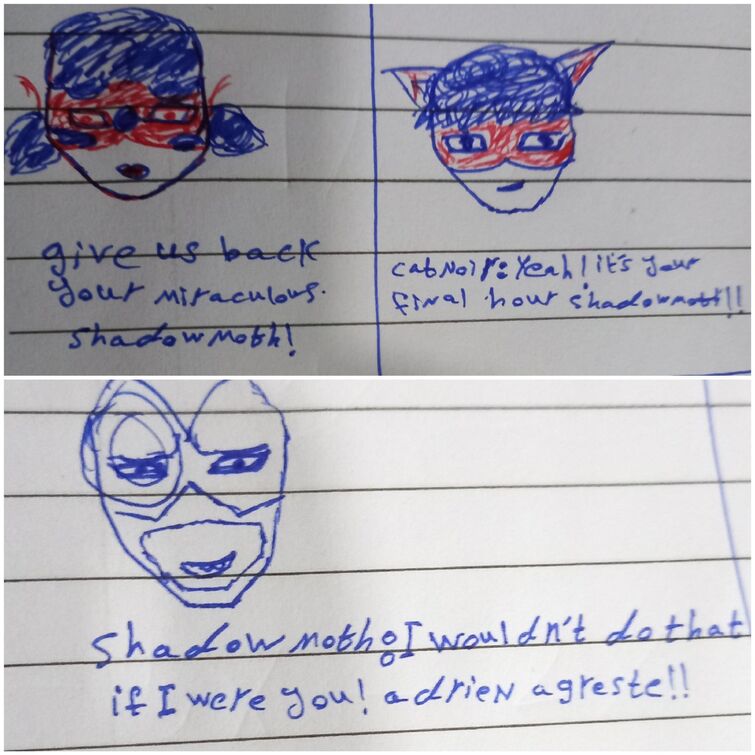 give us back
your miraculous.
shadowmoth!
catNoir: Yeah! it's your
final hour shadowmoth!!
Shadowmoth: I wouldn't do that
if I were you! adrien agreste!!